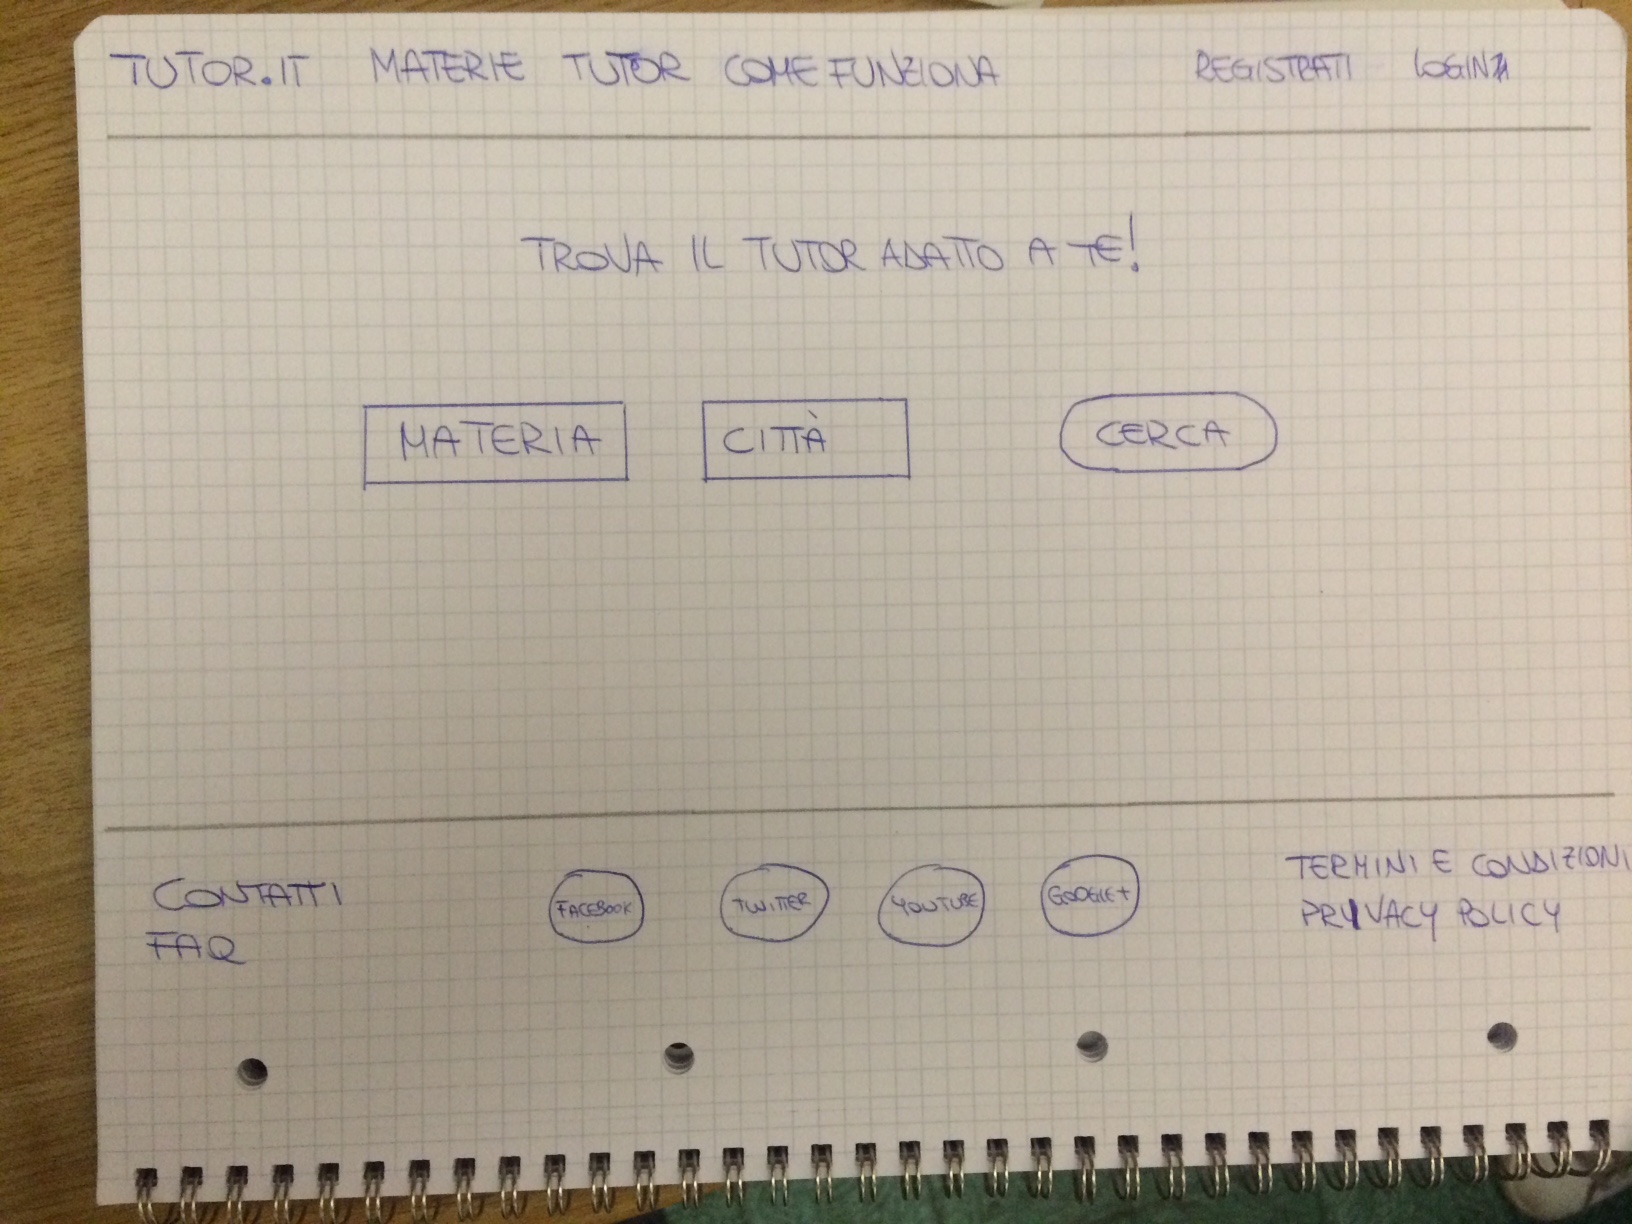 TUTOR.IT MATERIE TUTOR COME FUNZIONA REGISTRATI LOGIN
TROVA IL TUTOR ADATTO A TE!
MATERIA CITTÀ CERCA
CONTATTI FACEBOOK TWITTER YOUTUBE GOOGLE+ TERMINI E CONDIZIONI
FAQ PRIVACY POLICY